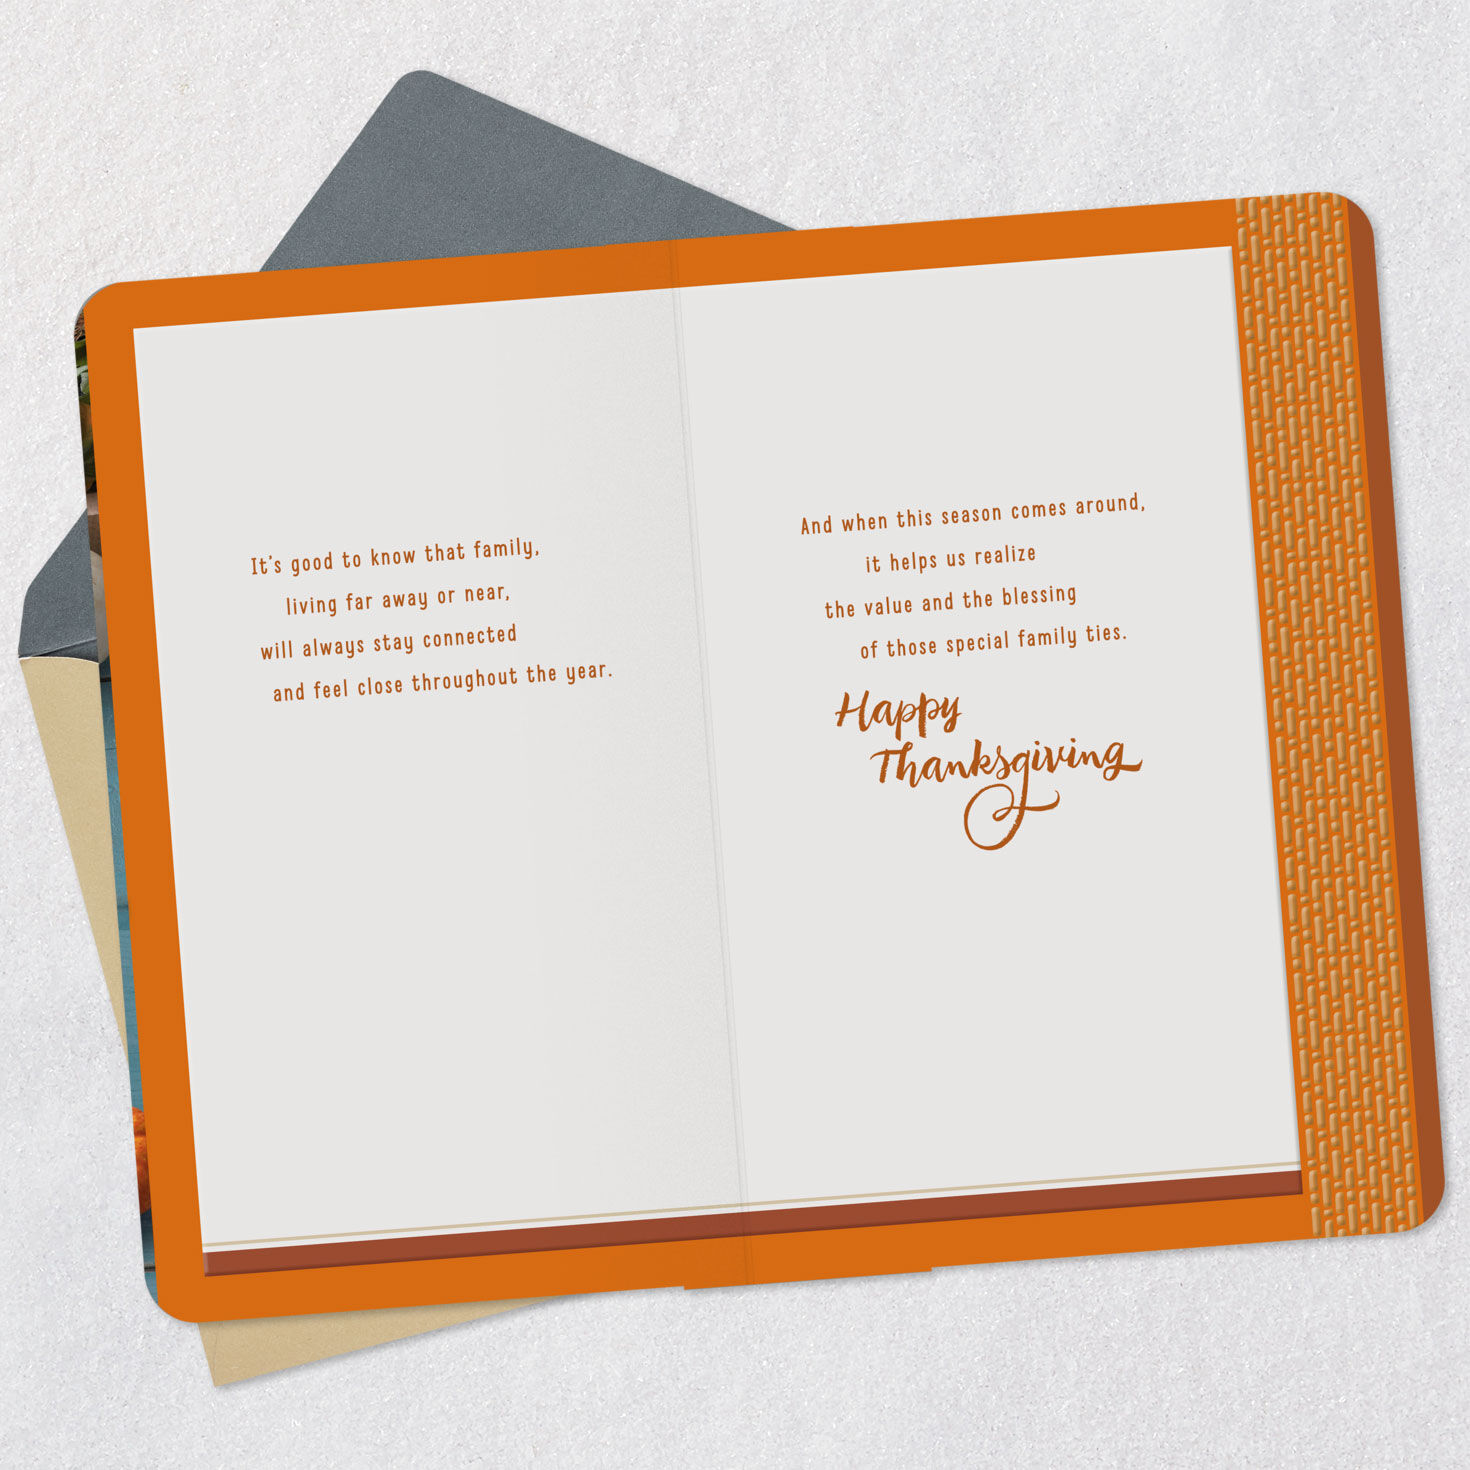 It's good to know that family,
living far away or near,
will always stay connected
and feel close throughout the year.
And when this season comes around,
it helps us realize
the value and the blessing
of those special family ties.
Happy
Thanksgiving